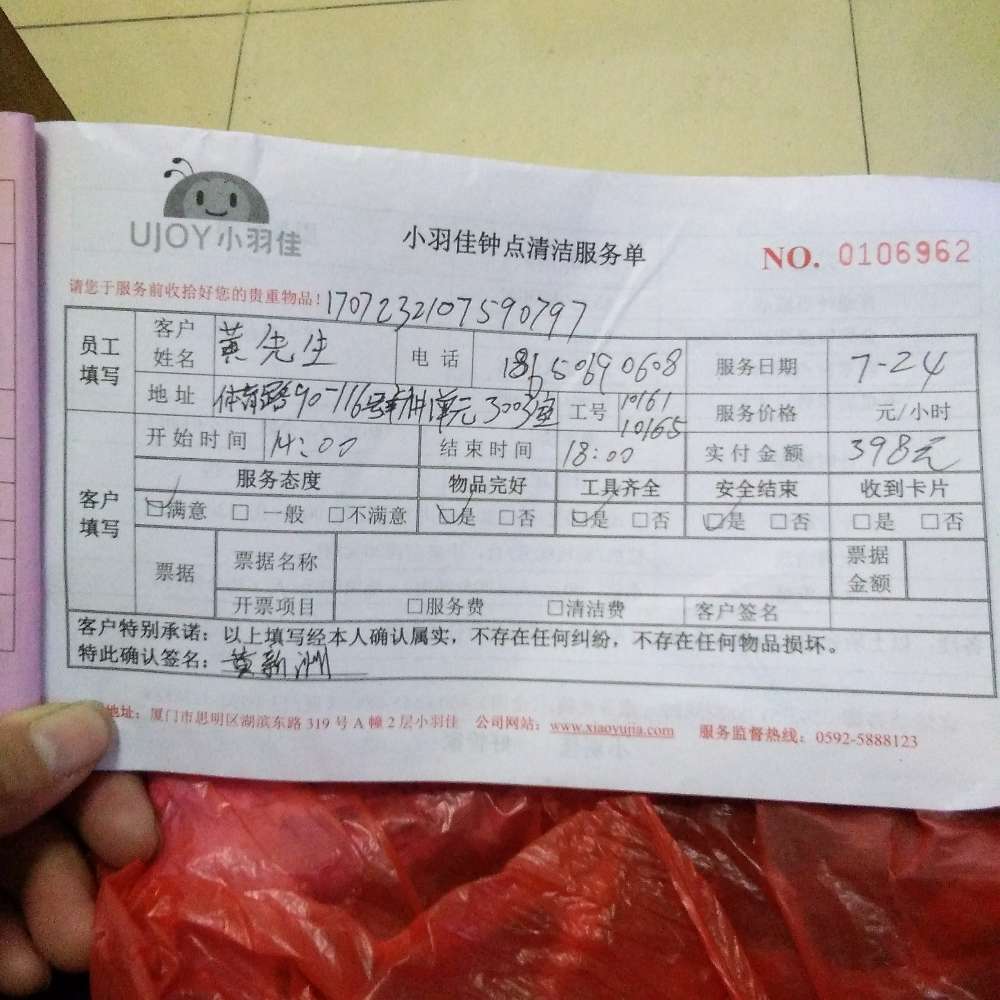 UJOY小羽佳
小羽佳钟点清洁服务单
NO. 0106962
请您于服务前收拾好您的贵重物品！1707232107590797
员工填写 客户姓名 黄先生 电话 18650690608 服务日期 7-24
地址 体育路90-116号 单元3003室 工号 10161 10165 服务价格 元/小时
客户填写 开始时间 14:00 结束时间 18:00 实付金额 398元
服务态度 物品完好 工具齐全 安全结束 收到卡片
☑满意 □一般 □不满意 ☑是 □否 ☑是 □否 ☑是 □否 □是 □否
票据 票据名称 票据金额
开票项目 □服务费 □清洁费 客户签名
客户特别承诺：以上填写经本人确认属实，不存在任何纠纷，不存在任何物品损坏。
特此确认签名：黄新洲
地址：厦门市思明区湖滨东路 319 号 A 幢 2 层小羽佳 公司网站：www.xiaoyujia.com 服务监督热线：0592-5888123